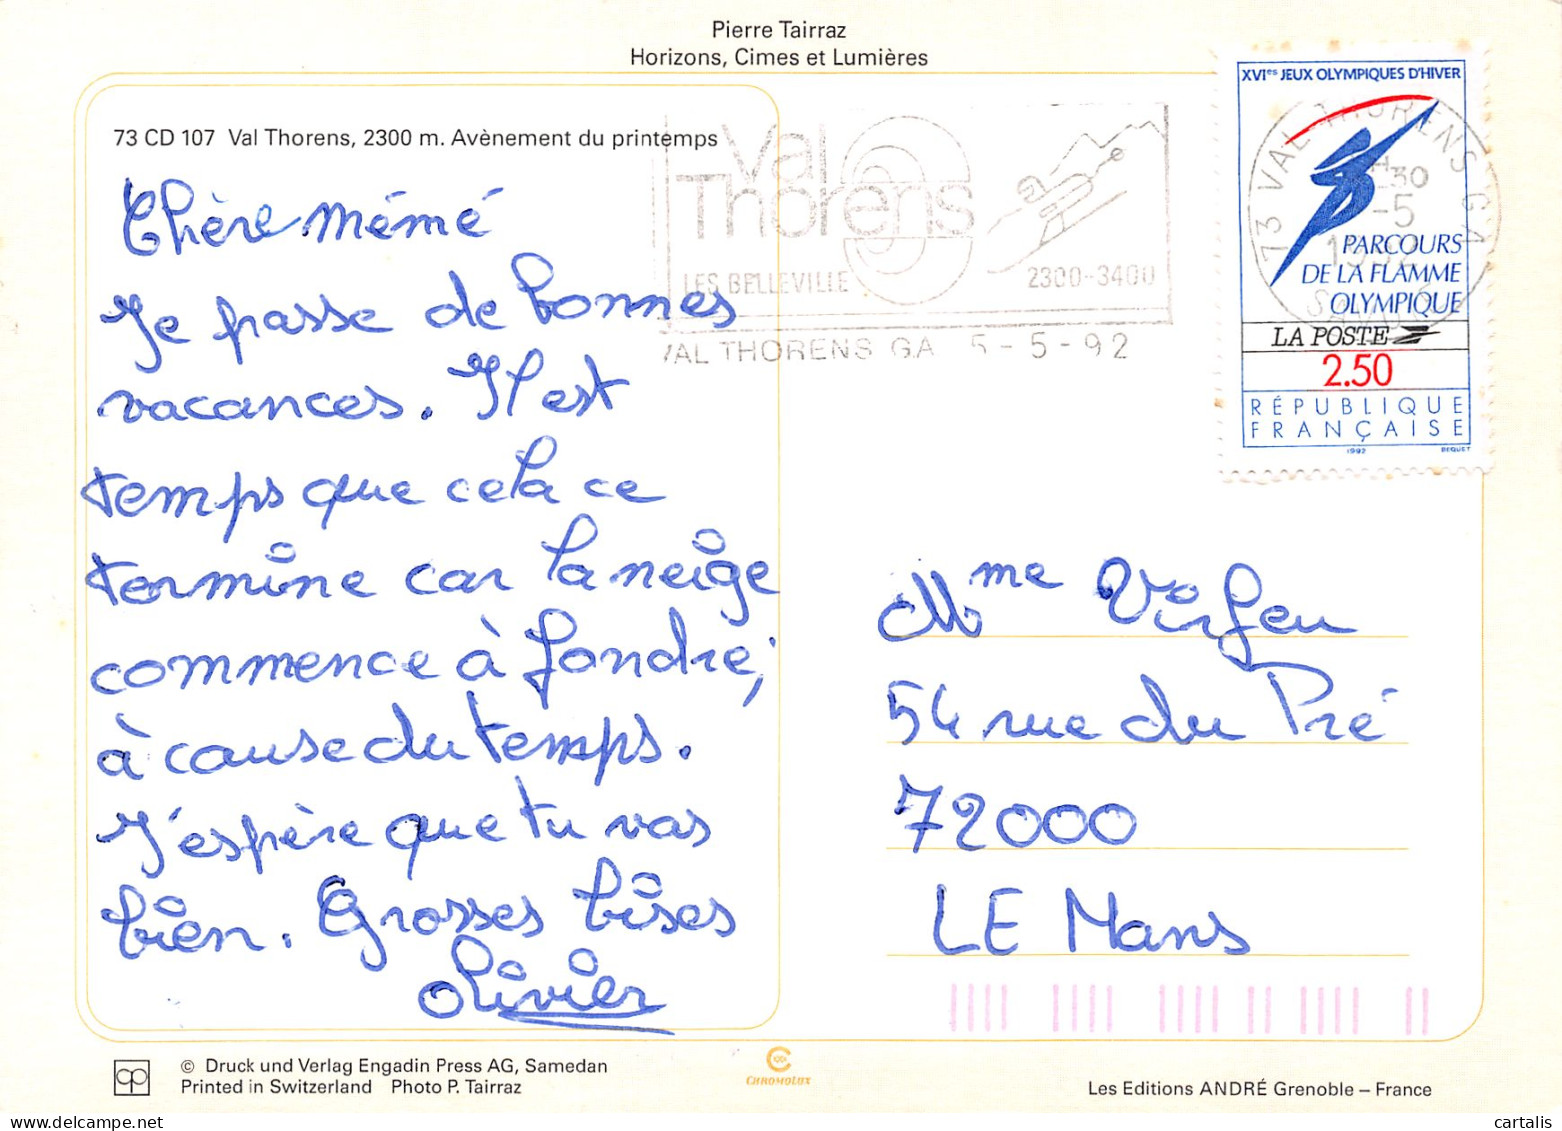 Pierre Tairraz
Horizons, Cimes et Lumières
73 CD 107 Val Thorens, 2300 m. Avènement du printemps
Chère mémé
Je passe de bonnes
vacances. Il est
temps que cela ce
termine car la neige
commence à fondre,
à cause du temps.
J'espère que tu vas
bien. Grosses bises
Olivier
Val
Thorens
LES BELLEVILLE 2300-3400
VAL THORENS GA 5-5-92
XVIes JEUX OLYMPIQUES D'HIVER
PARCOURS
DE LA FLAMME
OLYMPIQUE
LA POSTE
2.50
RÉPUBLIQUE
FRANÇAISE
1992 BEQUET
73 VAL THORENS GA
-5
1992
Mme Virfeu
54 rue du Pré
72000
LE Mans
© Druck und Verlag Engadin Press AG, Samedan
Printed in Switzerland Photo P. Tairraz
CHROMOLUX
Les Editions ANDRÉ Grenoble – France
cartalis